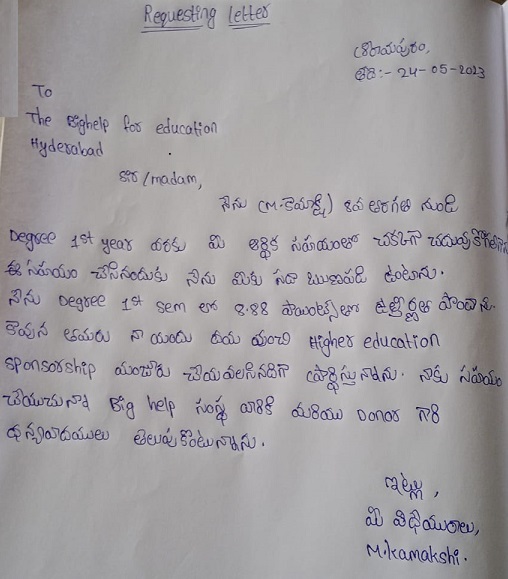 Requesting letter
శ్రీరాయపురం,
తేది:- 24-05-2023
To
The Bighelp for education
Hyderabad
సర్/madam,
నేను (M. కామాక్షి) 6వ తరగతి నుండి
Degree 1st year వరకు మీ ఆర్థిక సహాయంతో చక్కగా చదువు
ఈ సహాయం చేసినందుకు నేను మీకు సదా ఋణపడి ఉంటాను.
నేను Degree 1st sem లో 8.88 పాయింట్స్ తో ఉత్తీర్ణత పొందాను.
కావున తమరు నా యందు దయ వుంచి Higher education
sponsorship మంజూరు చేయవలసినదిగా ప్రార్థిస్తున్నాను. నాకు సహాయం
చేయుచున్న Big help సంస్థ వారికి మరియు Donor గారికి
ధన్యవాదములు తెలుపుకొంటున్నాను.
ఇట్లు,
మీ విధేయురాలు,
M.Kamakshi.